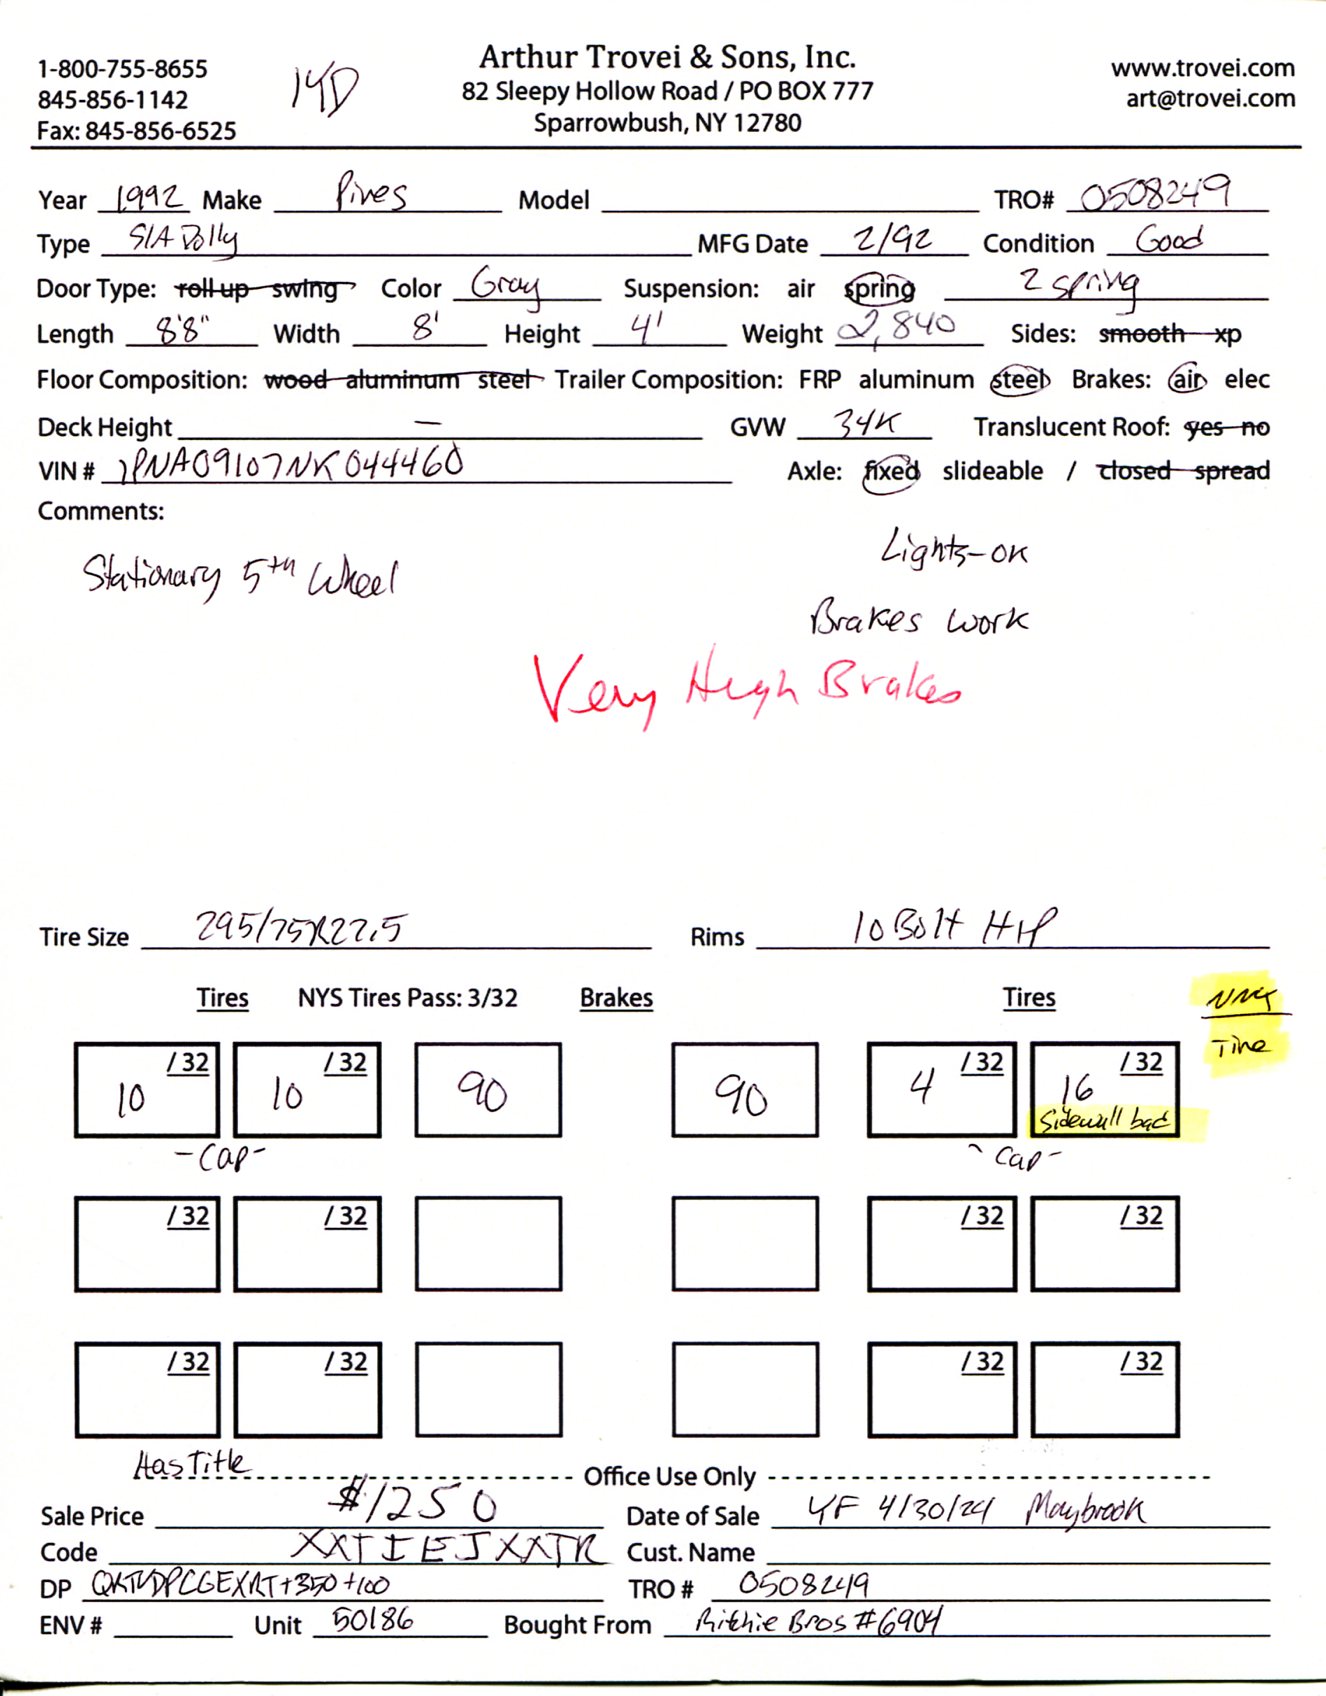 Arthur Trovei & Sons, Inc.
1-800-755-8655
845-856-1142
Fax: 845-856-6525
82 Sleepy Hollow Road / PO BOX 777
Sparrowbush, NY 12780
www.trovei.com
art@trovei.com
Year 1992 Make Pines Model TRO# 0508249
Type S/A Dolly MFG Date 2/92 Condition Good
Door Type: roll up swing Color Gray Suspension: air spring 2 spring
Length 8'8" Width 8' Height 4' Weight 2,840 Sides: smooth xp
Floor Composition: wood aluminum steel Trailer Composition: FRP aluminum steel Brakes: air elec
Deck Height — GVW 34K Translucent Roof: yes no
VIN # 1PNA09107NK044460 Axle: fixed slideable / closed spread
Comments:
Stationary 5th Wheel
Lights-OK
Brakes work
Very High Brakes
Tire Size 295/75R22.5 Rims 10 Bolt HP
Tires NYS Tires Pass: 3/32 Brakes Tires
Tire
10 /32 10 /32 90 90 4 /32 16 /32
Sidewall bad
-Cap- -Cap-
/32 /32 /32 /32
/32 /32 /32 /32
Has Title
Office Use Only
Sale Price $1250 Date of Sale YF 4/30/24 Maybrook
Code XXTIEJXXTR Cust. Name
DP +350+100 TRO # 0508249
ENV # Unit 50186 Bought From Ritchie Bros #6904